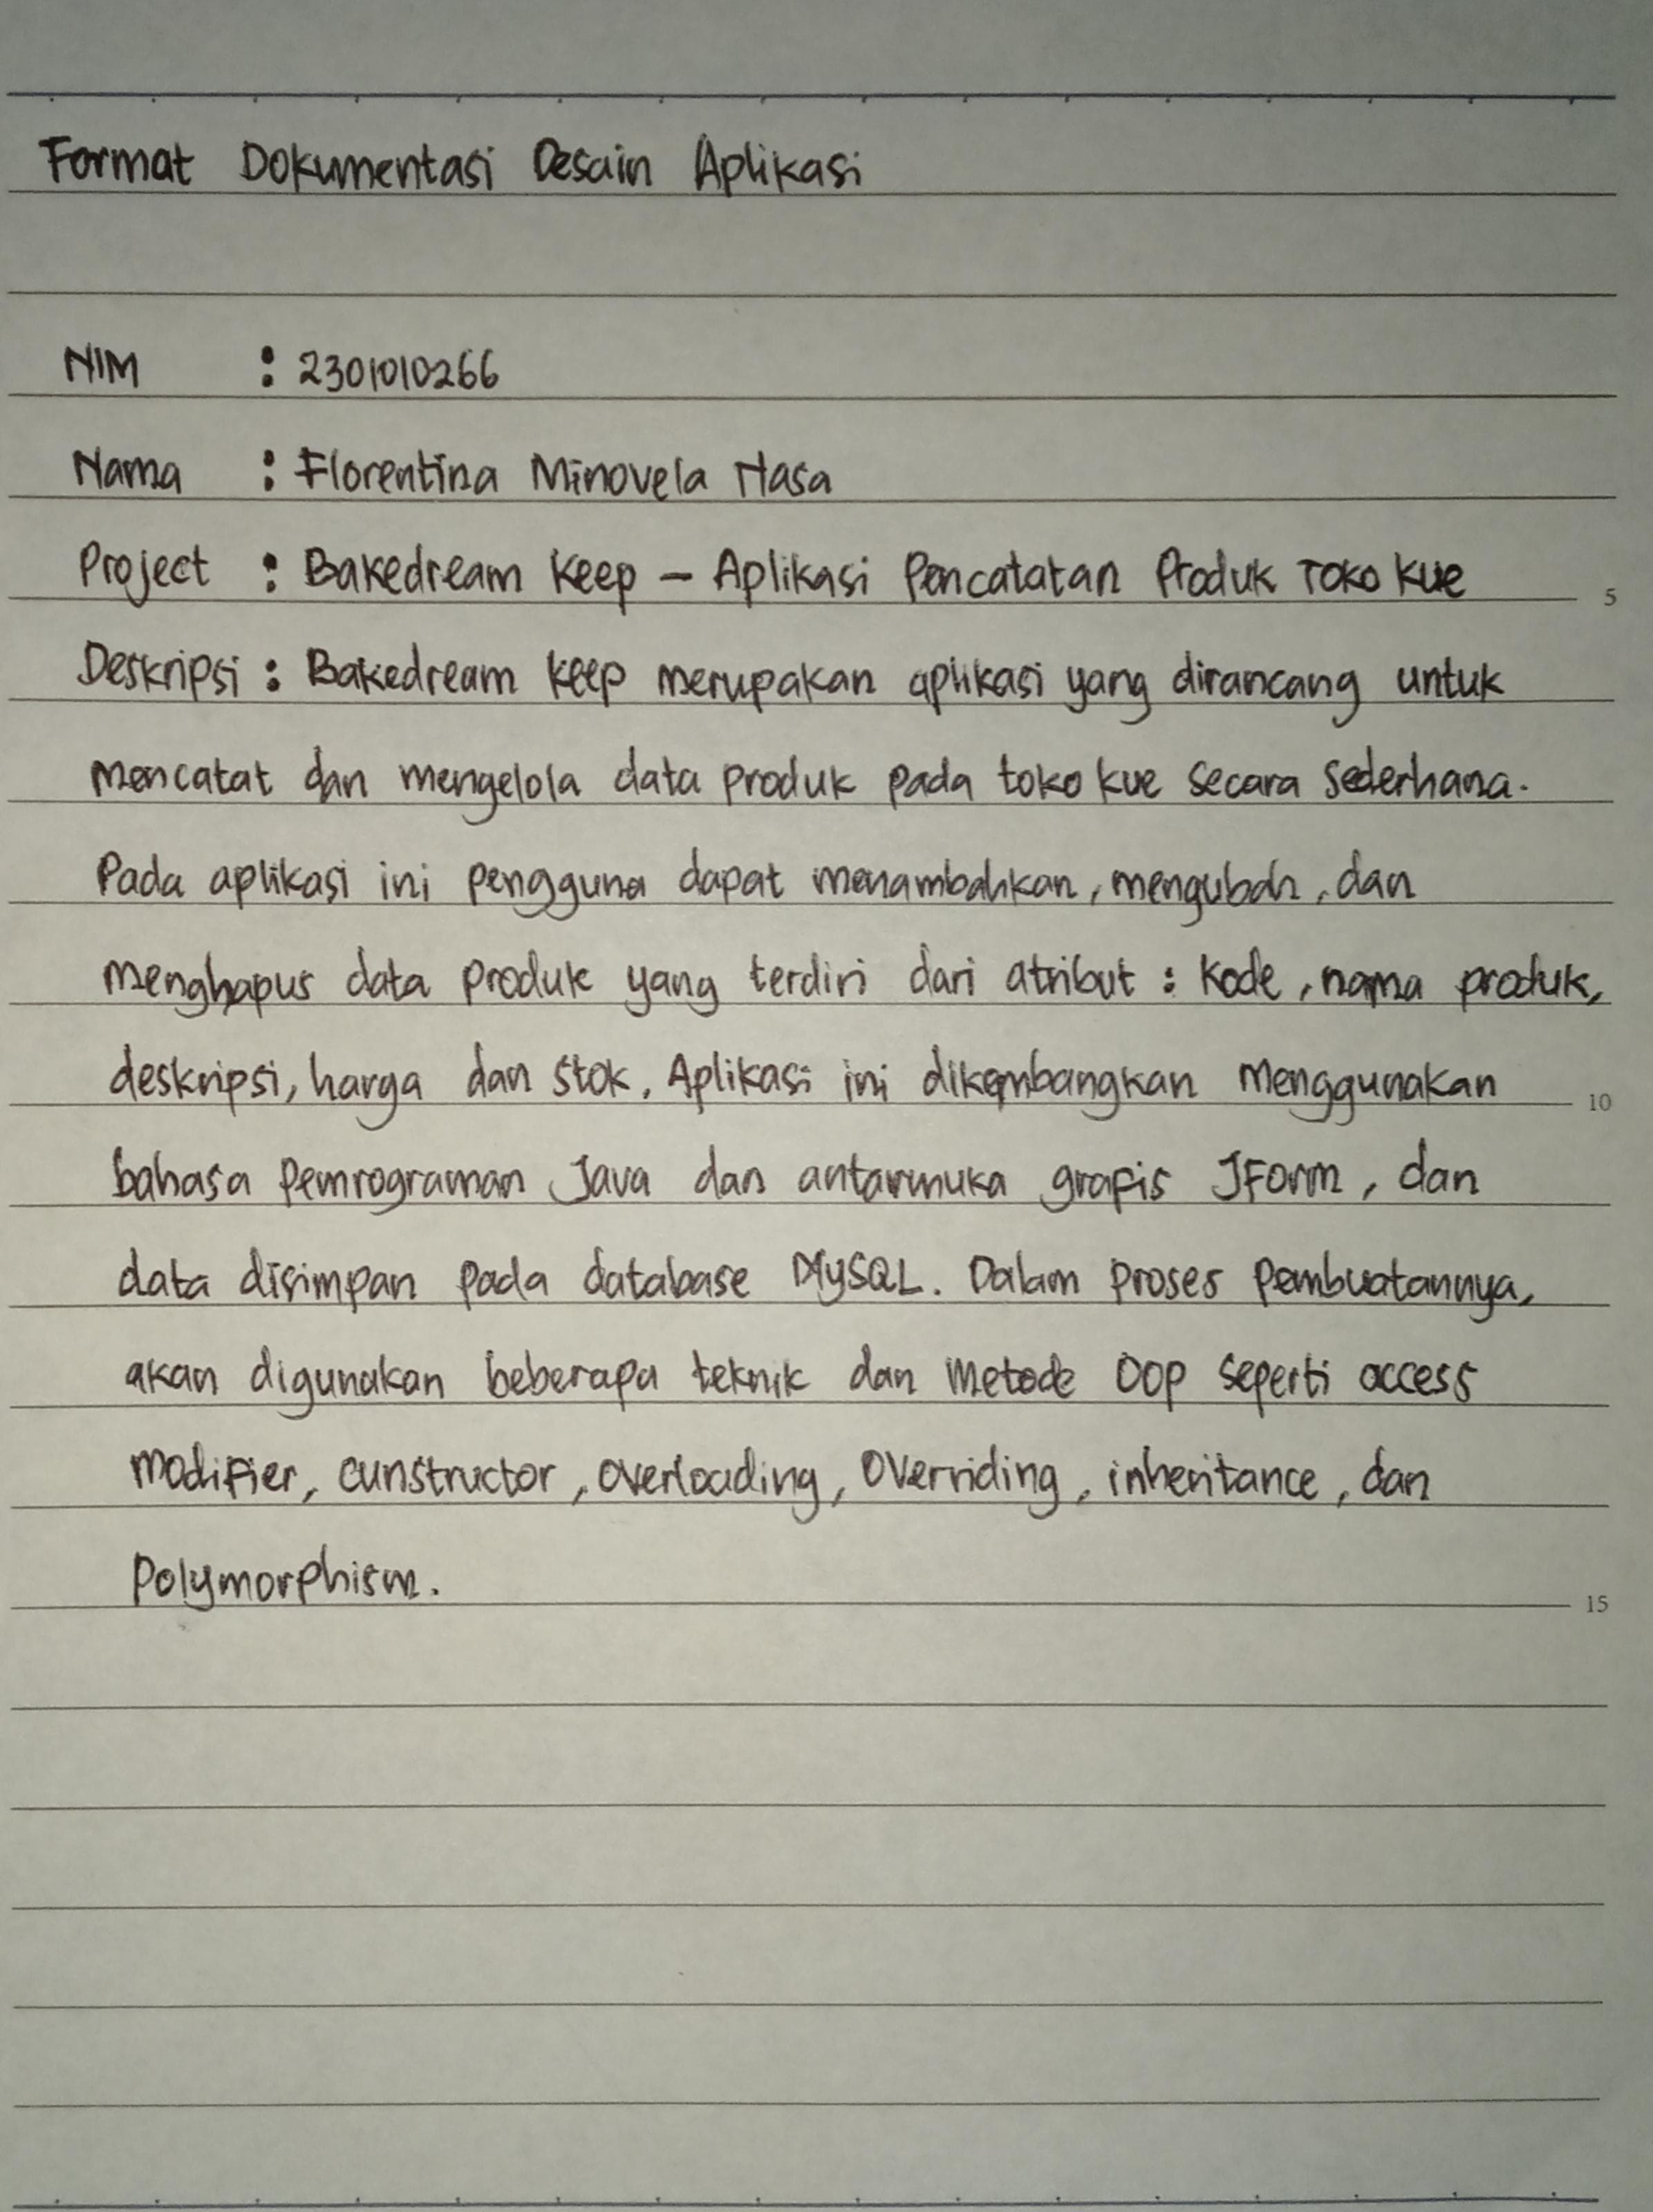 Format Dokumentasi Desain Aplikasi
NIM : 2301010266
Nama : Florentina Minovela Nasa
Project : Bakedream Keep – Aplikasi Pencatatan Produk Toko Kue 5
Deskripsi : Bakedream Keep merupakan aplikasi yang dirancang untuk
mencatat dan mengelola data produk pada toko kue secara sederhana.
Pada aplikasi ini pengguna dapat menambahkan, mengubah, dan
menghapus data produk yang terdiri dari atribut : kode, nama produk,
deskripsi, harga dan stok. Aplikasi ini dikembangkan menggunakan 10
bahasa pemrograman Java dan antarmuka grafis JForm, dan
data disimpan pada database MySQL. Dalam proses pembuatannya,
akan digunakan beberapa teknik dan metode OOP seperti access
modifier, cunstructor, overloading, overriding, inheritance, dan
polymorphism. 15